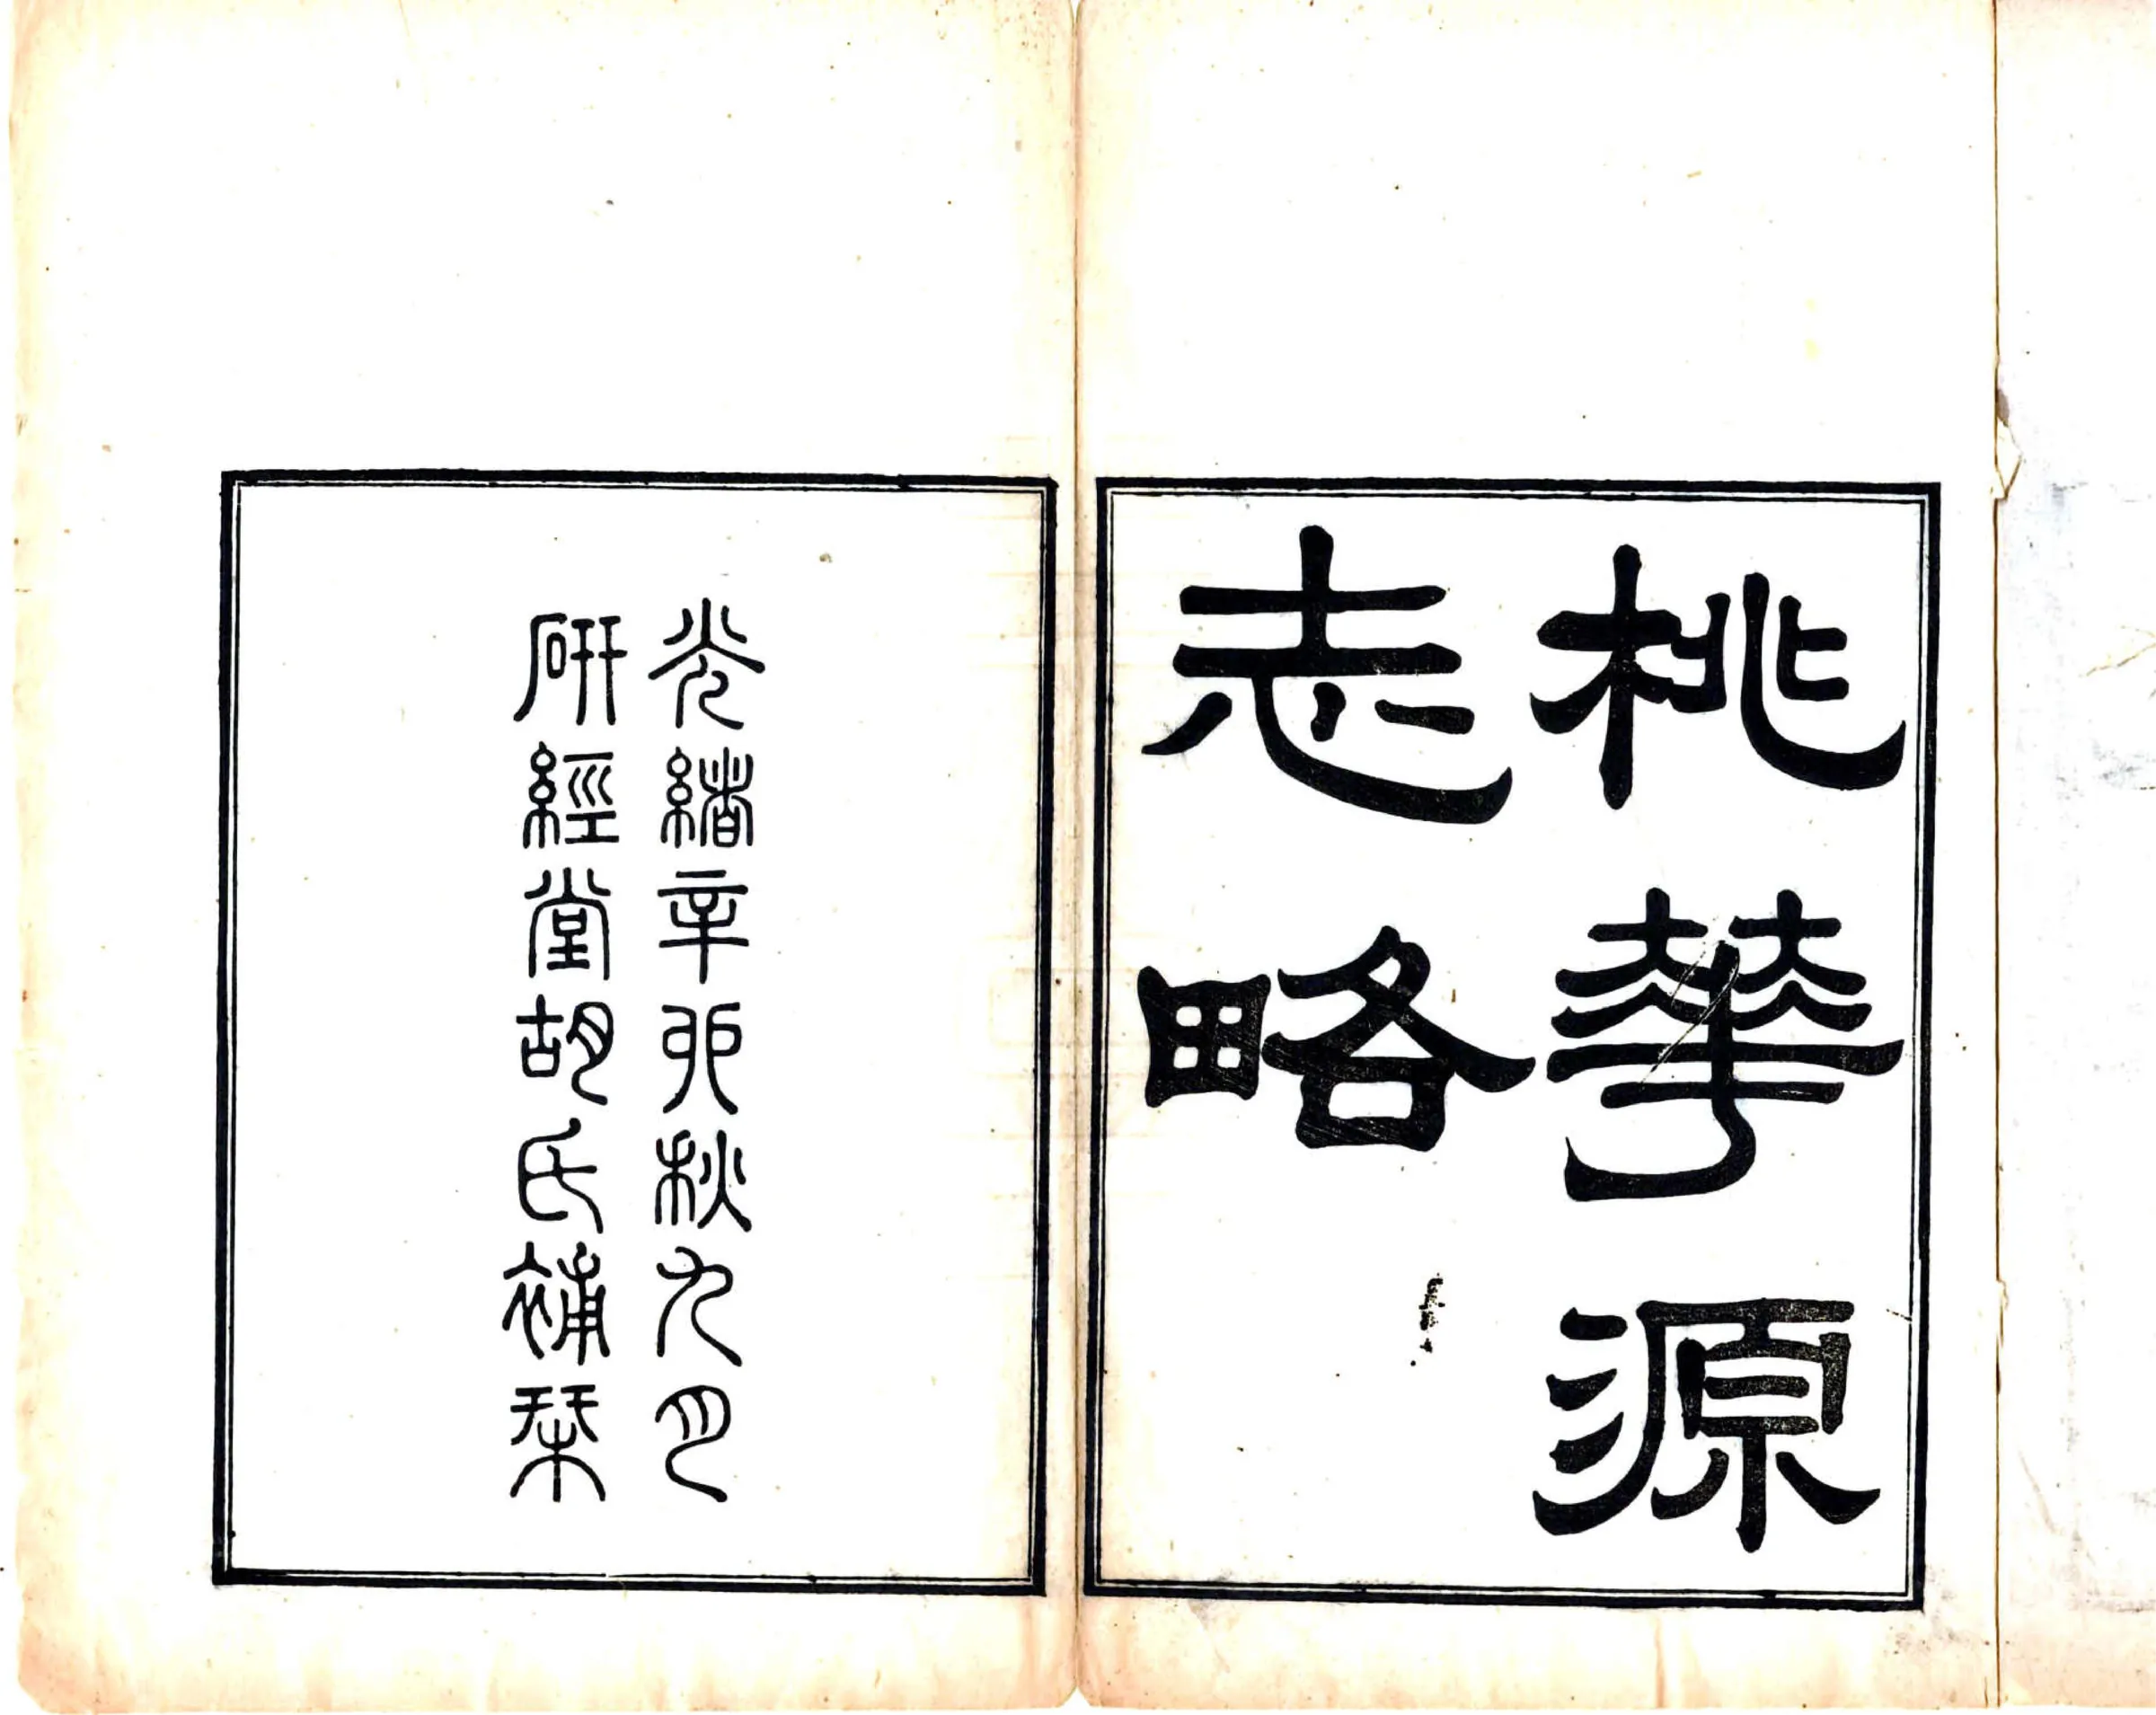 桃華源
志略
光緒辛卯秋九月
研經堂胡氏補栞